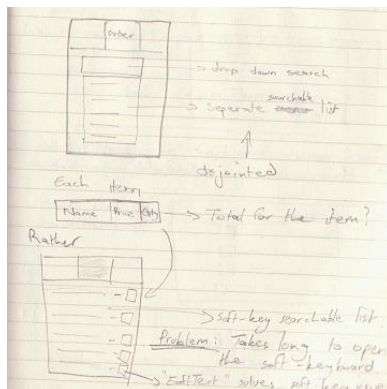 order
-> drop down search
searchable
-> Separate list
disjointed
Each Item
Name Price Qty -> Total for the item?
Rather
-> Soft-key searchable list
Problem: Takes long to open
the soft-keyboard
-> "EditText" solves soft key